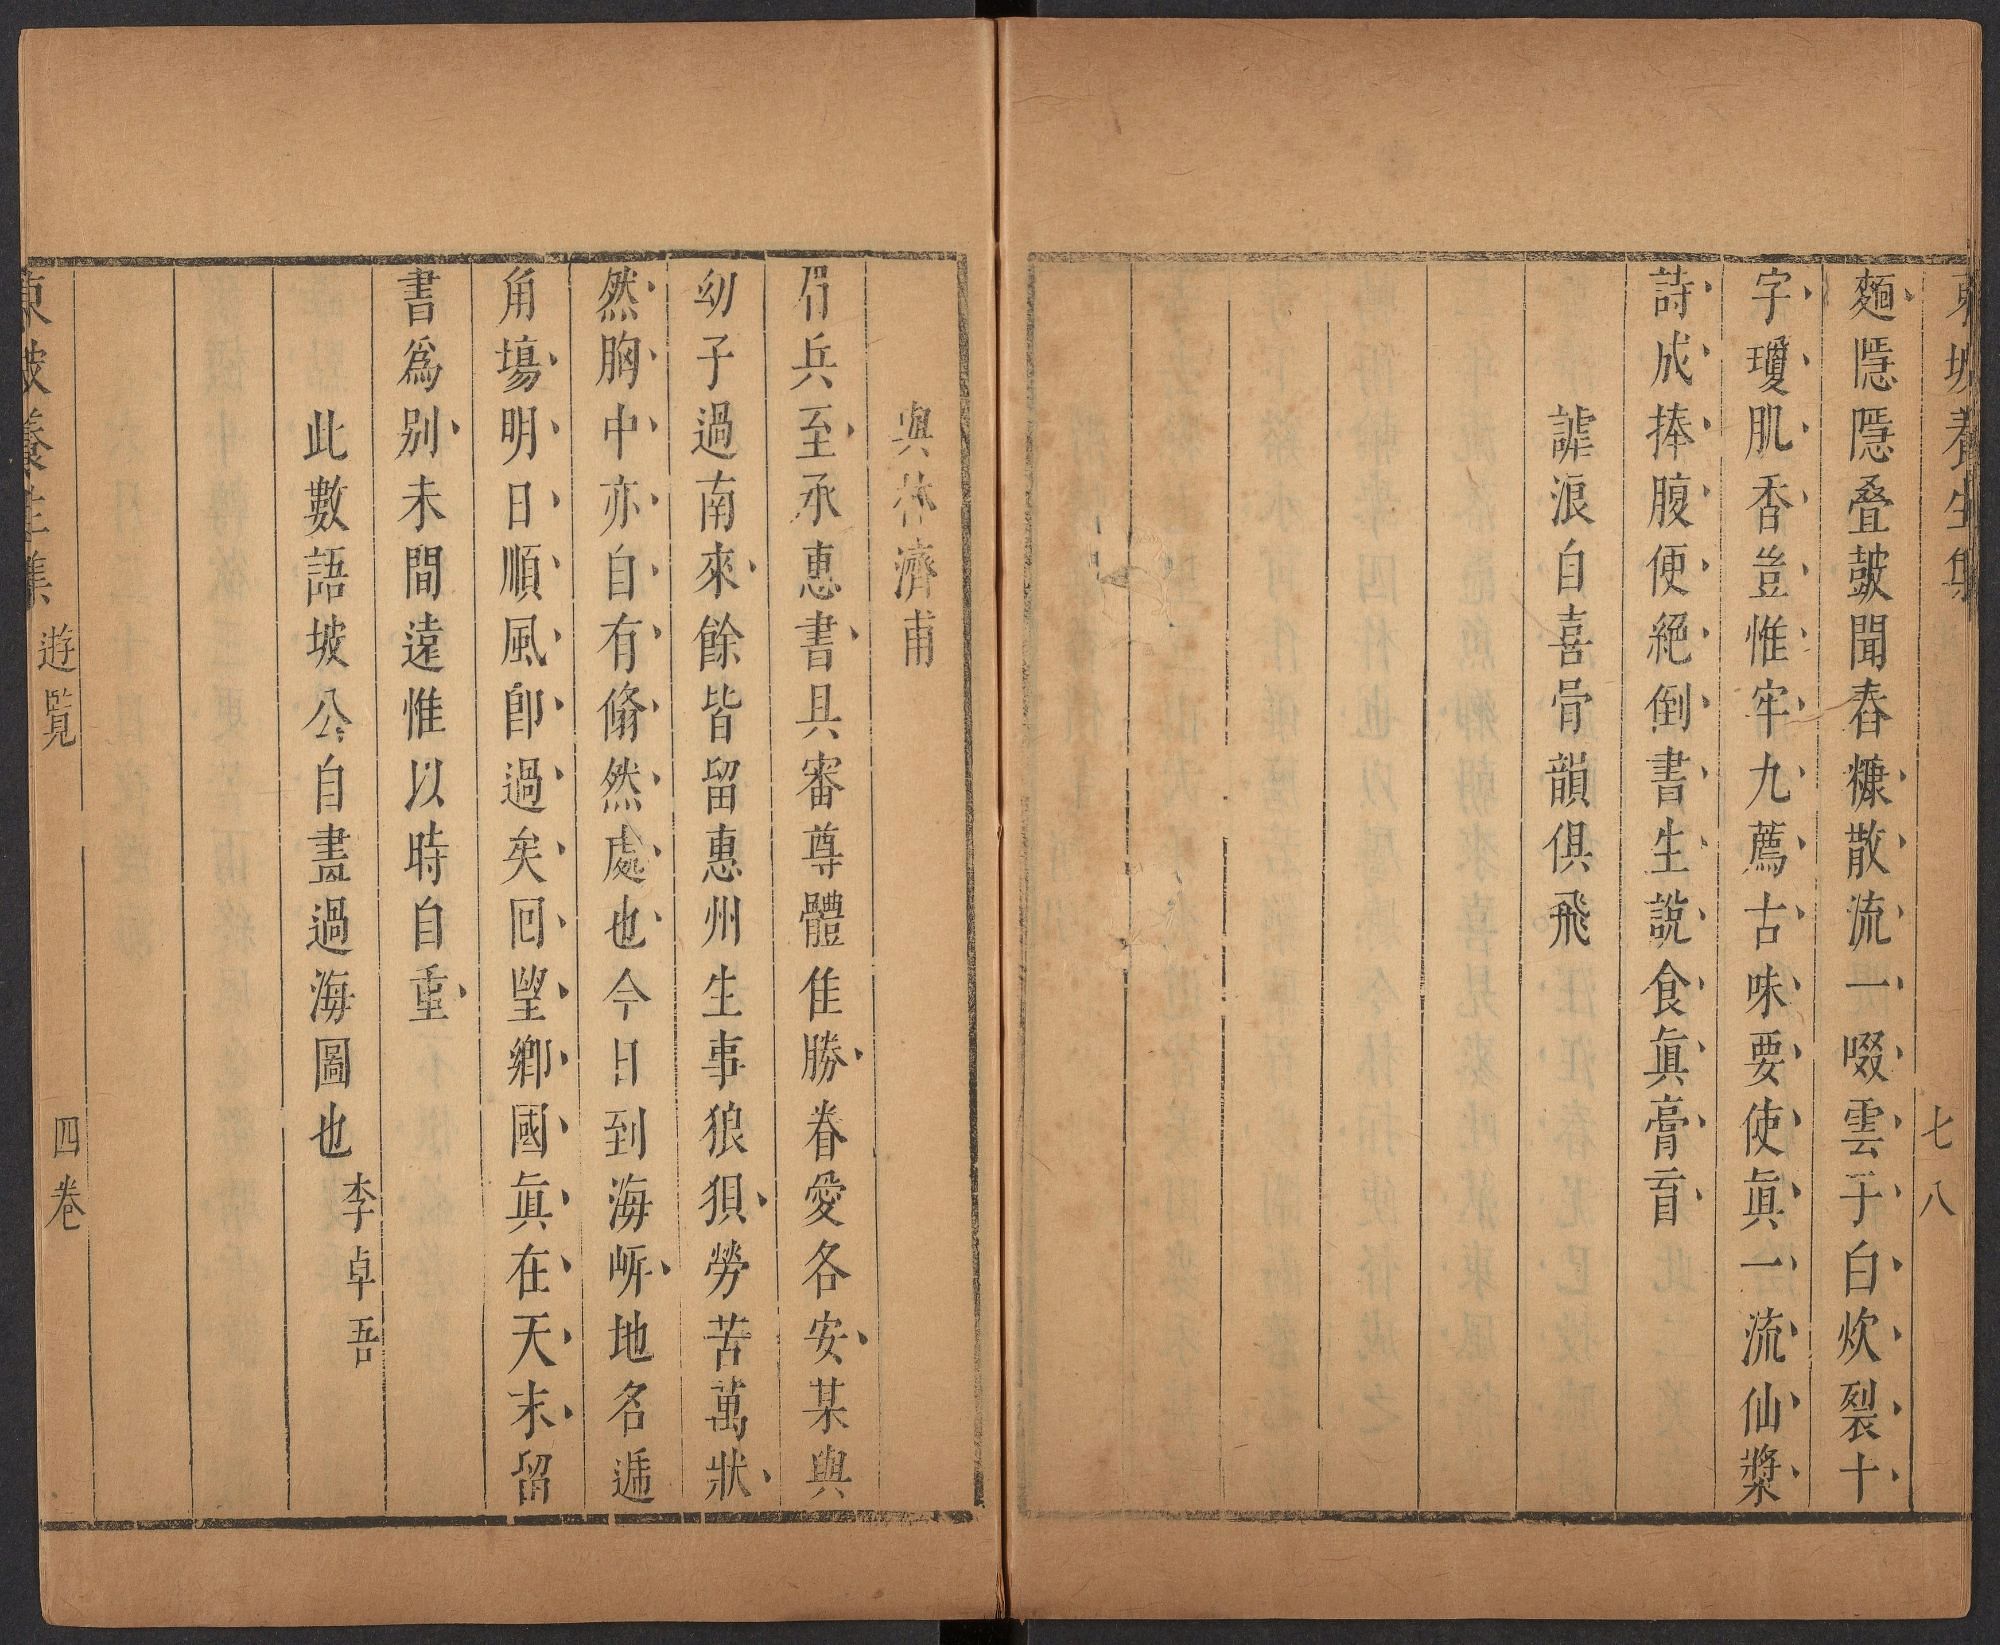 東坡養生集
七八
麵隱隱疊皷聞舂糠散流一啜雲子白炊裂十
字瓊肌香豈惟牢九薦古味要使眞一流仙漿
詩成捧腹便絕倒書生說食眞膏肓
謔浪自喜骨韻俱飛
與林濟甫
眉兵至承惠書具審尊體佳勝眷愛各安某與
幼子過南來餘皆留惠州生事狼狽勞苦萬狀
然胸中亦自有翛然處也今日到海岍地名遞
角塲明日順風卽過矣回望鄉國眞在天末留
書爲别未間遠惟以時自重
此數語坡公自畫過海圖也
李卓吾
東坡養生集 遊覧
四卷